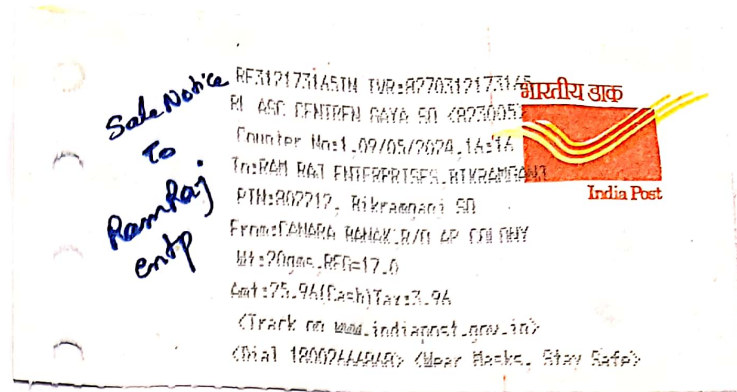 Sale Notice
To
RamRaj
entp
RF312173165IN IVR:8270312173165
RL ASC CENTREN GAYA SO <823005>
Counter No:1,09/05/2024,14:14
To:RAM RAJ ENTERPRISES,BIKRAMGANJ
PIN:802212, Bikramganj SO
From:CANARA BANAK,R/O AP COLONY
Wt:20gms,REG=17.0
Amt:25.96(Cash)Tax:3.96
<Track on www.indiapost.gov.in>
<Dial 18002666868> <Wear Masks, Stay Safe>
भारतीय डाक
India Post